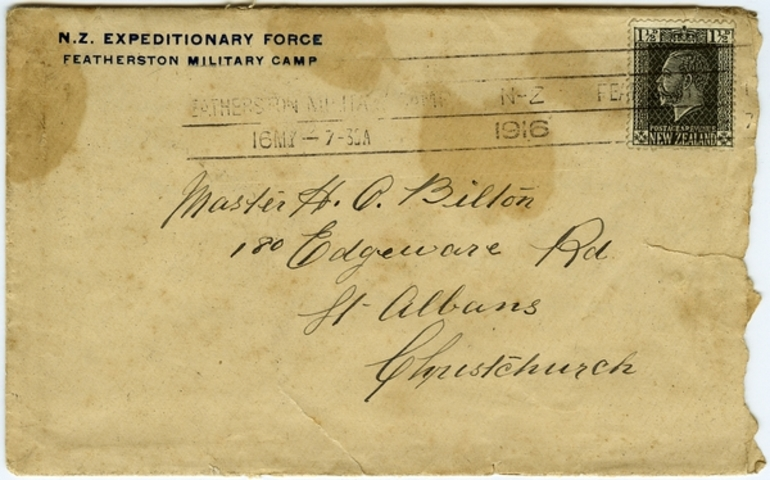 N.Z. EXPEDITIONARY FORCE
FEATHERSTON MILITARY CAMP
1½ᴰ 1½ᴰ
FEATHERSTON MILITARY CAMP N-Z FEA
16MY – 7-30A 1916
POSTAGE & REVENUE
NEW ZEALAND
Master H. O. Bilton
180 Edgeware Rd
St Albans
Christchurch